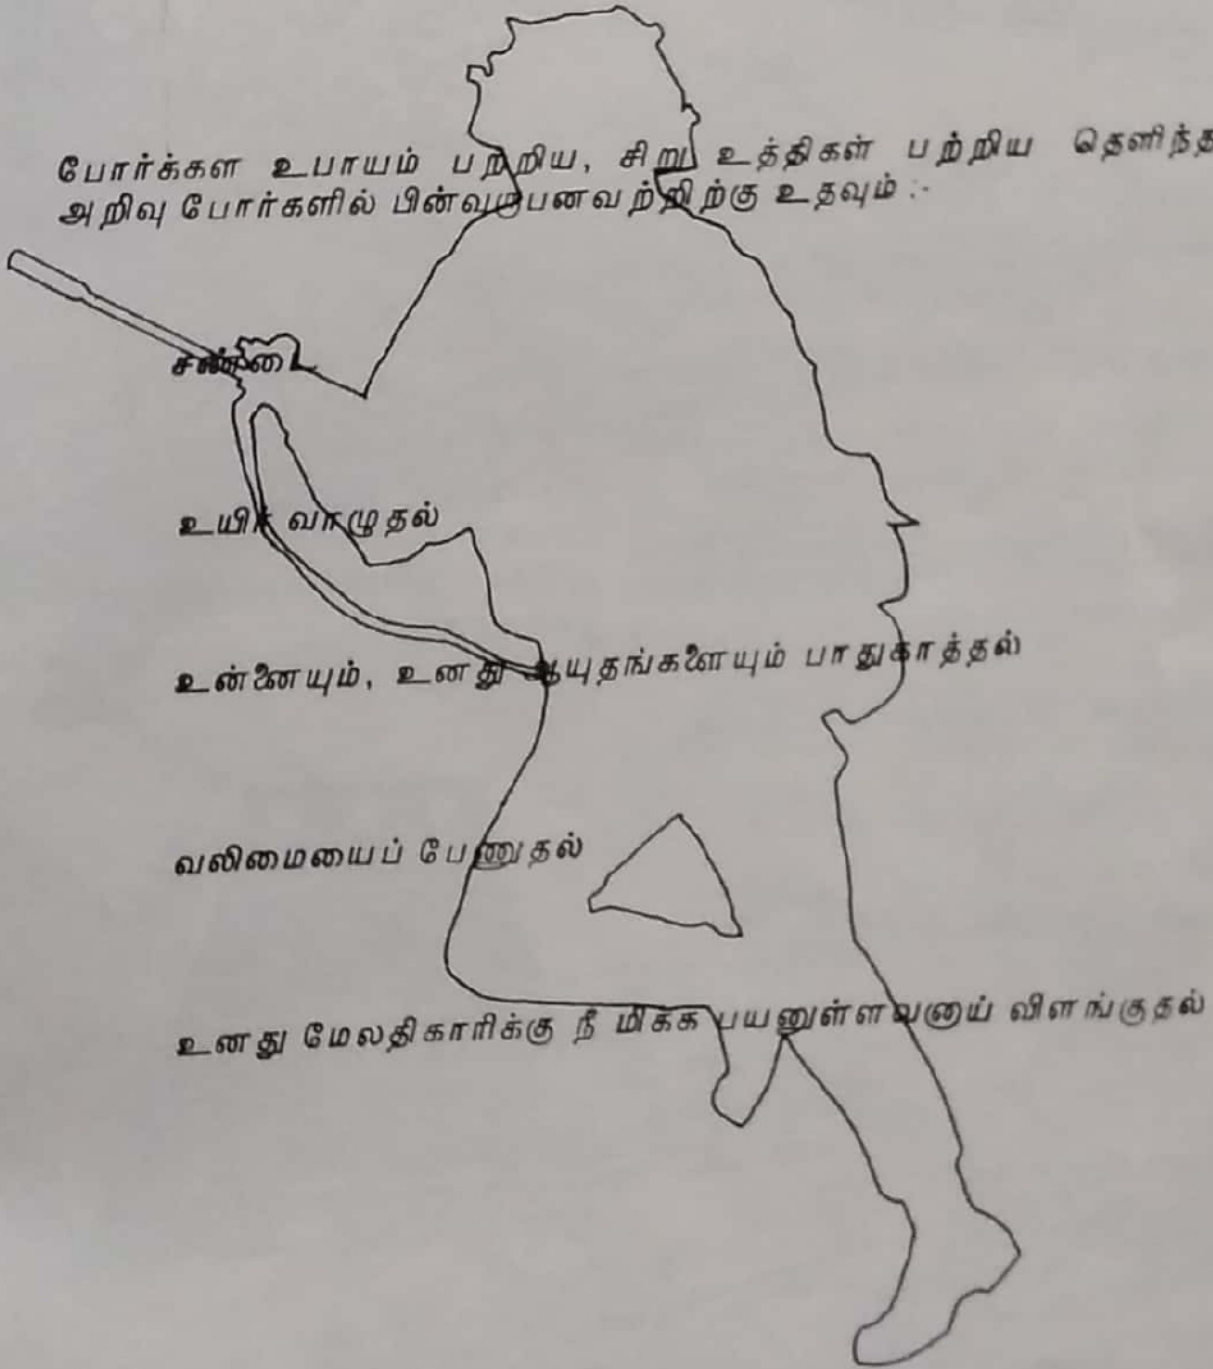 போர்க்கள உபாயம் பற்றிய, சிறு உத்திகள் பற்றிய தெளிந்த
அறிவு போர்களில் பின்வருபனவற்றிற்கு உதவும் :-
சண்டை
உயிர் வாழுதல்
உன்னையும், உனது ஆயுதங்களையும் பாதுகாத்தல்
வலிமையைப் பேணுதல்
உனது மேலதிகாரிக்கு நீ மிக்க பயனுள்ளவனாய் விளங்குதல்